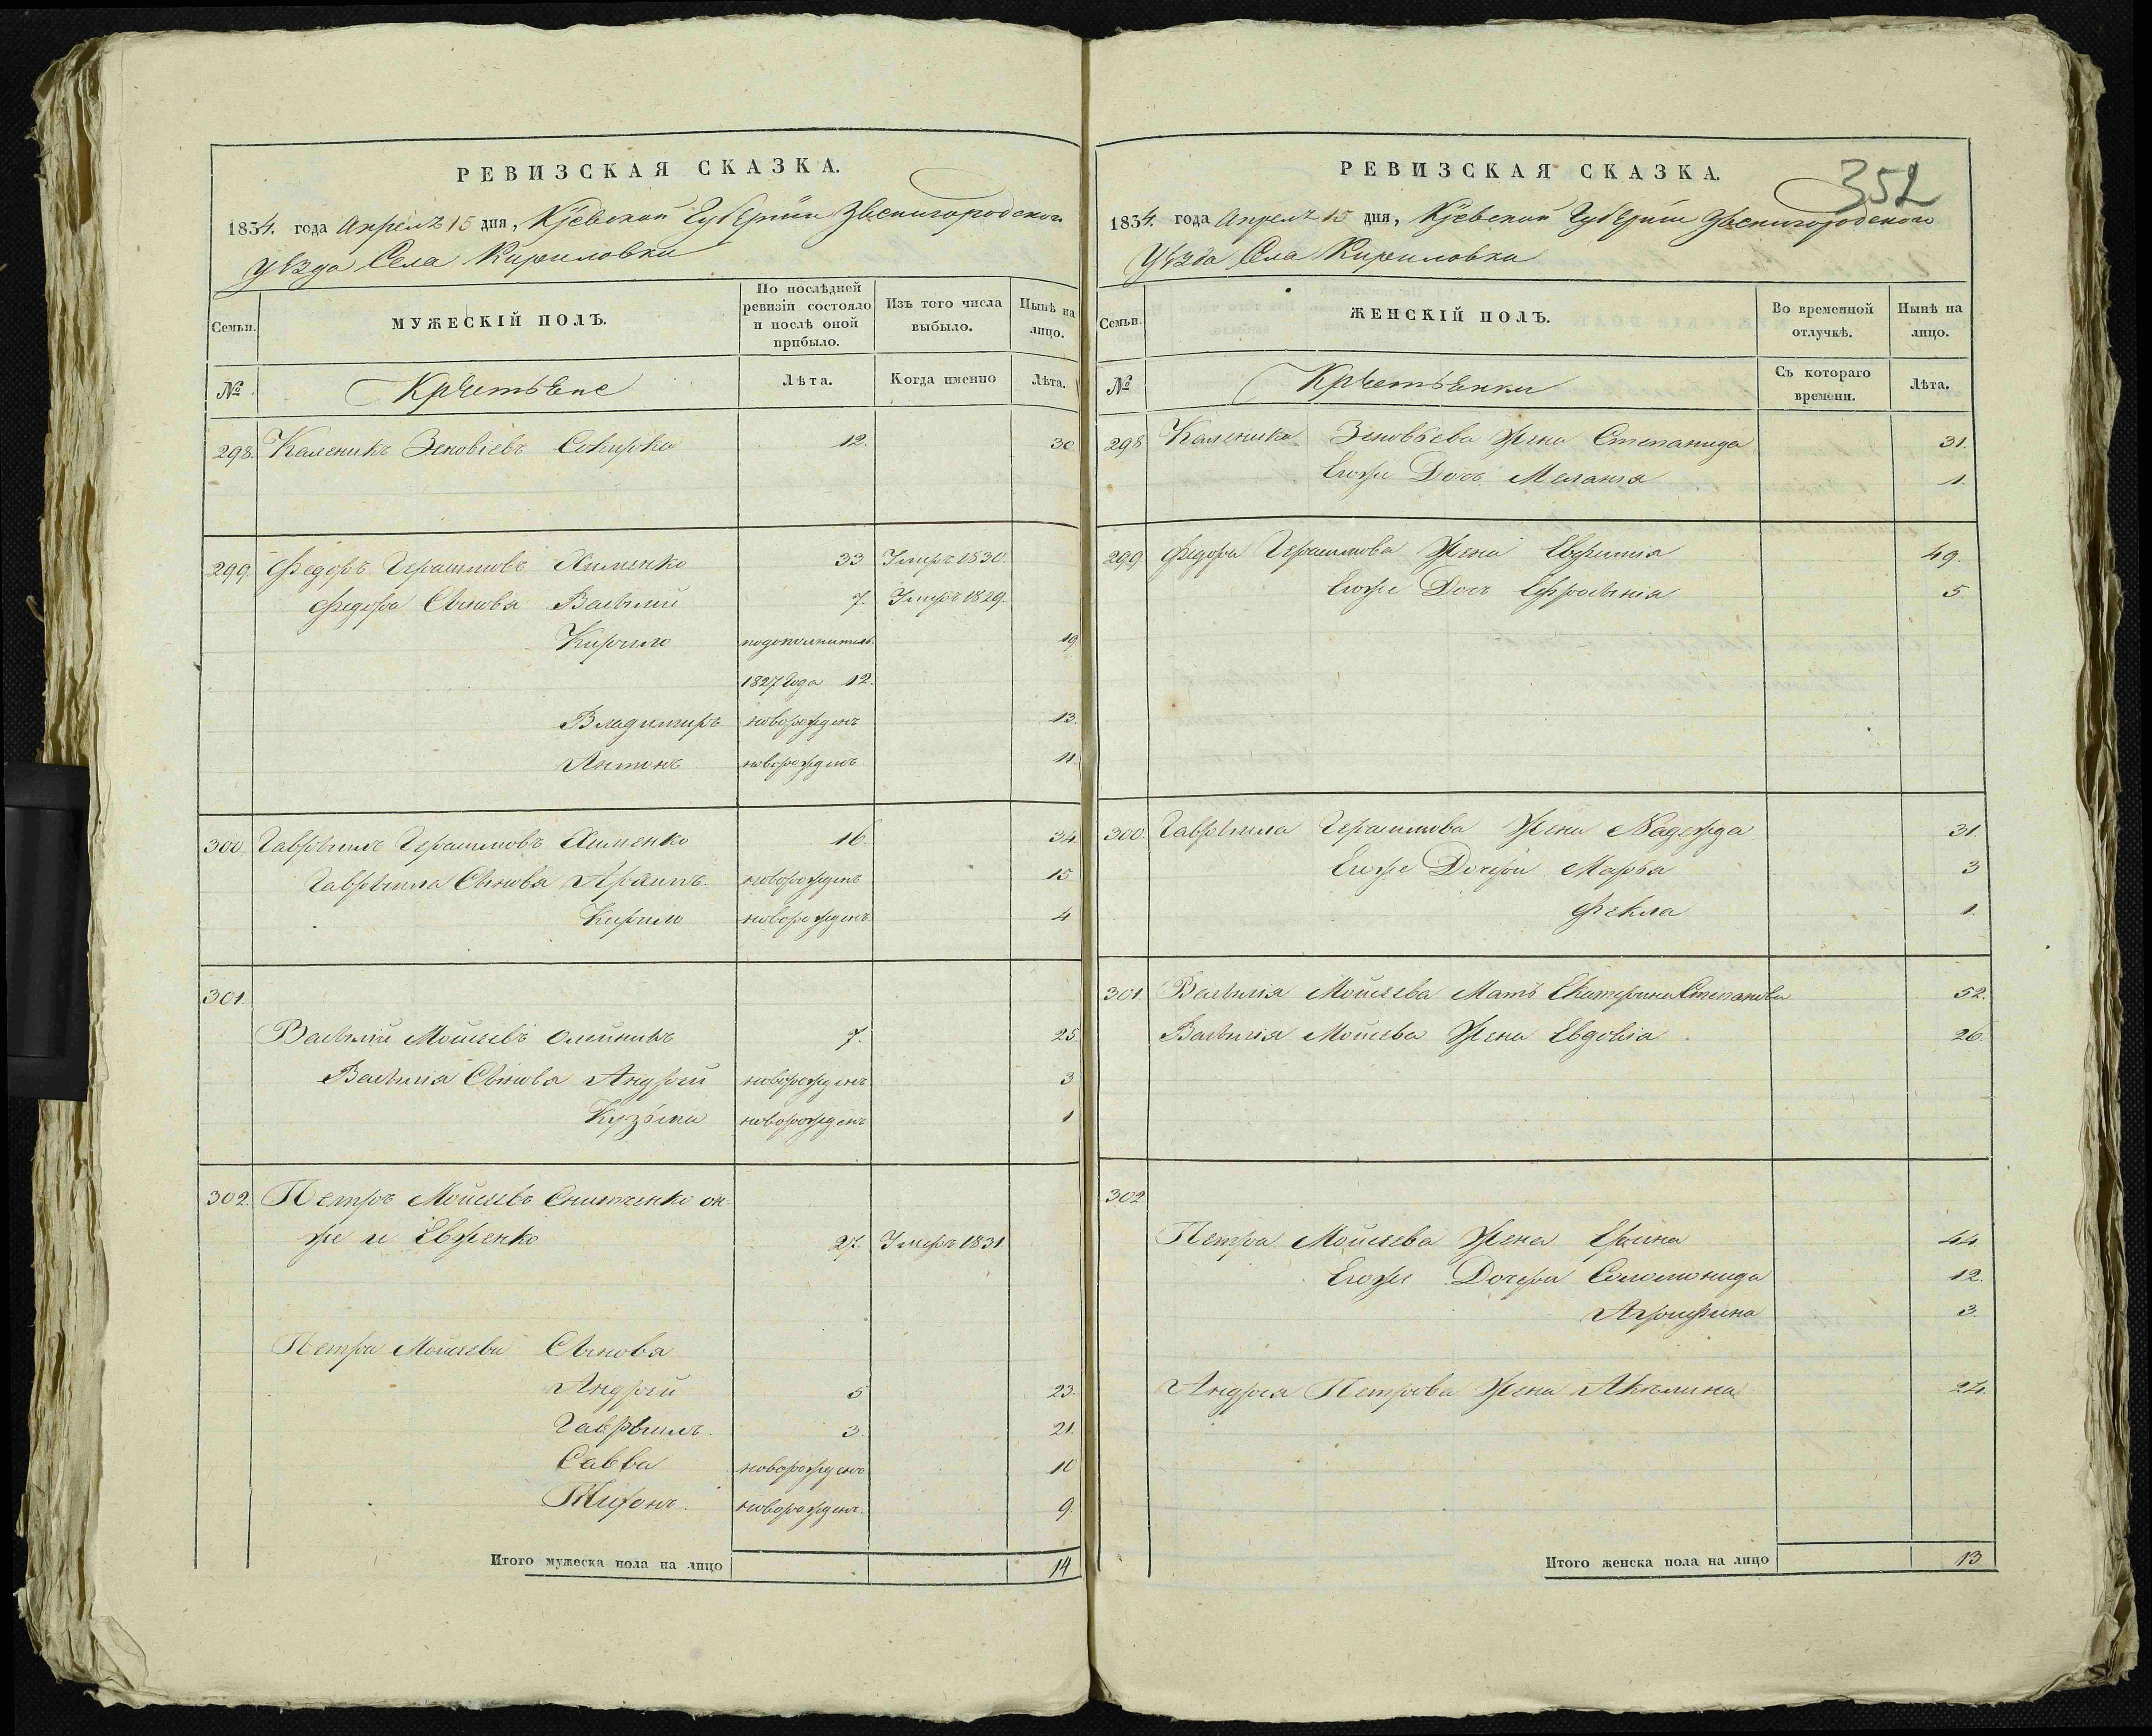 РЕВИЗСКАЯ СКАЗКА.
1834. года Апреля 15 дня, Кіевской Губерніи Звенигородского
уѣзда Села Кириловки
Семьи.
МУЖЕСКІЙ ПОЛЪ.
По послѣдней ревизіи состояло и послѣ оной прибыло.
Изъ того числа выбыло.
Нынѣ на лицо.
№
Крестьяне
Лѣта.
Когда именно
Лѣта.
298. Каленикъ Зеновіевъ Сокирко 12. 30
299. Федоръ Герасимовъ Химченко 33 Умеръ 1830.
Федора Сыновья Василий 7. Умеръ 1829.
Кирило подополнитель. 19
1827 года 12.
Владимиръ новорожденъ 13.
Антонъ новорожденъ 11.
300. Гаврѣилъ Герасимовъ Химченко 16. 34.
Гаврѣила Сыновья новорожденъ 15
Кирило новорожденъ 4
301.
Василий Мойсеевъ Олейникъ 7. 25.
Василия Сыновья Андрей новорожденъ 3
Кузьма новорожденъ 1
302. Петръ Мойсеевъ Снитченко он
же и Евженко 27. Умеръ 1831.
Петра Мойсеева Сыновья
Андрей 5 23.
Гаврѣилъ. 3. 21.
Савва новорожденъ 10
Тифонъ. новорожден. 9.
Итого мужеска пола на лицо 14
352
РЕВИЗСКАЯ СКАЗКА.
1834. года Апреля 15 дня, Кіевской Губерніи Звенигородского
уѣзда Села Кириловки
Семьи.
ЖЕНСКІЙ ПОЛЪ.
Во временной отлучкѣ.
Нынѣ на лицо.
№
Крестьянки
Съ котораго времени.
Лѣта.
298 Каленика Зеновьева Жена Степанида 31.
Егоже Дочь Мелания 1.
299 Федора Герасимова Жена Евфимия 49.
Егоже Дочь Ефросинія 5.
300. Гаврѣила Герасимова Жена Надежда 31.
Егоже Дочери Марья 3
Фекла 1.
301. Василия Мойсеева Мать Екатерина Степанова 52.
Василия Мойсеева Жена Евдокія 26.
302
Петра Мойсеева Жена Ирина 44
Егоже Дочери Соломонида 12.
Агрифина 3.
Андрея Петрова Жена Акилина 24.
Итого женска пола на лицо 13